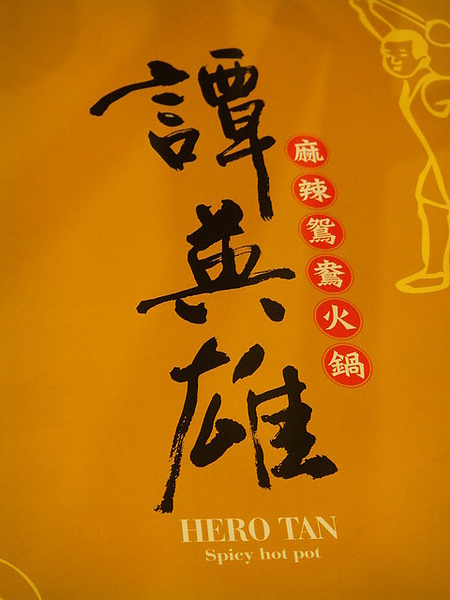 譚英雄
麻辣鴛鴦火鍋
HERO TAN
Spicy hot pot